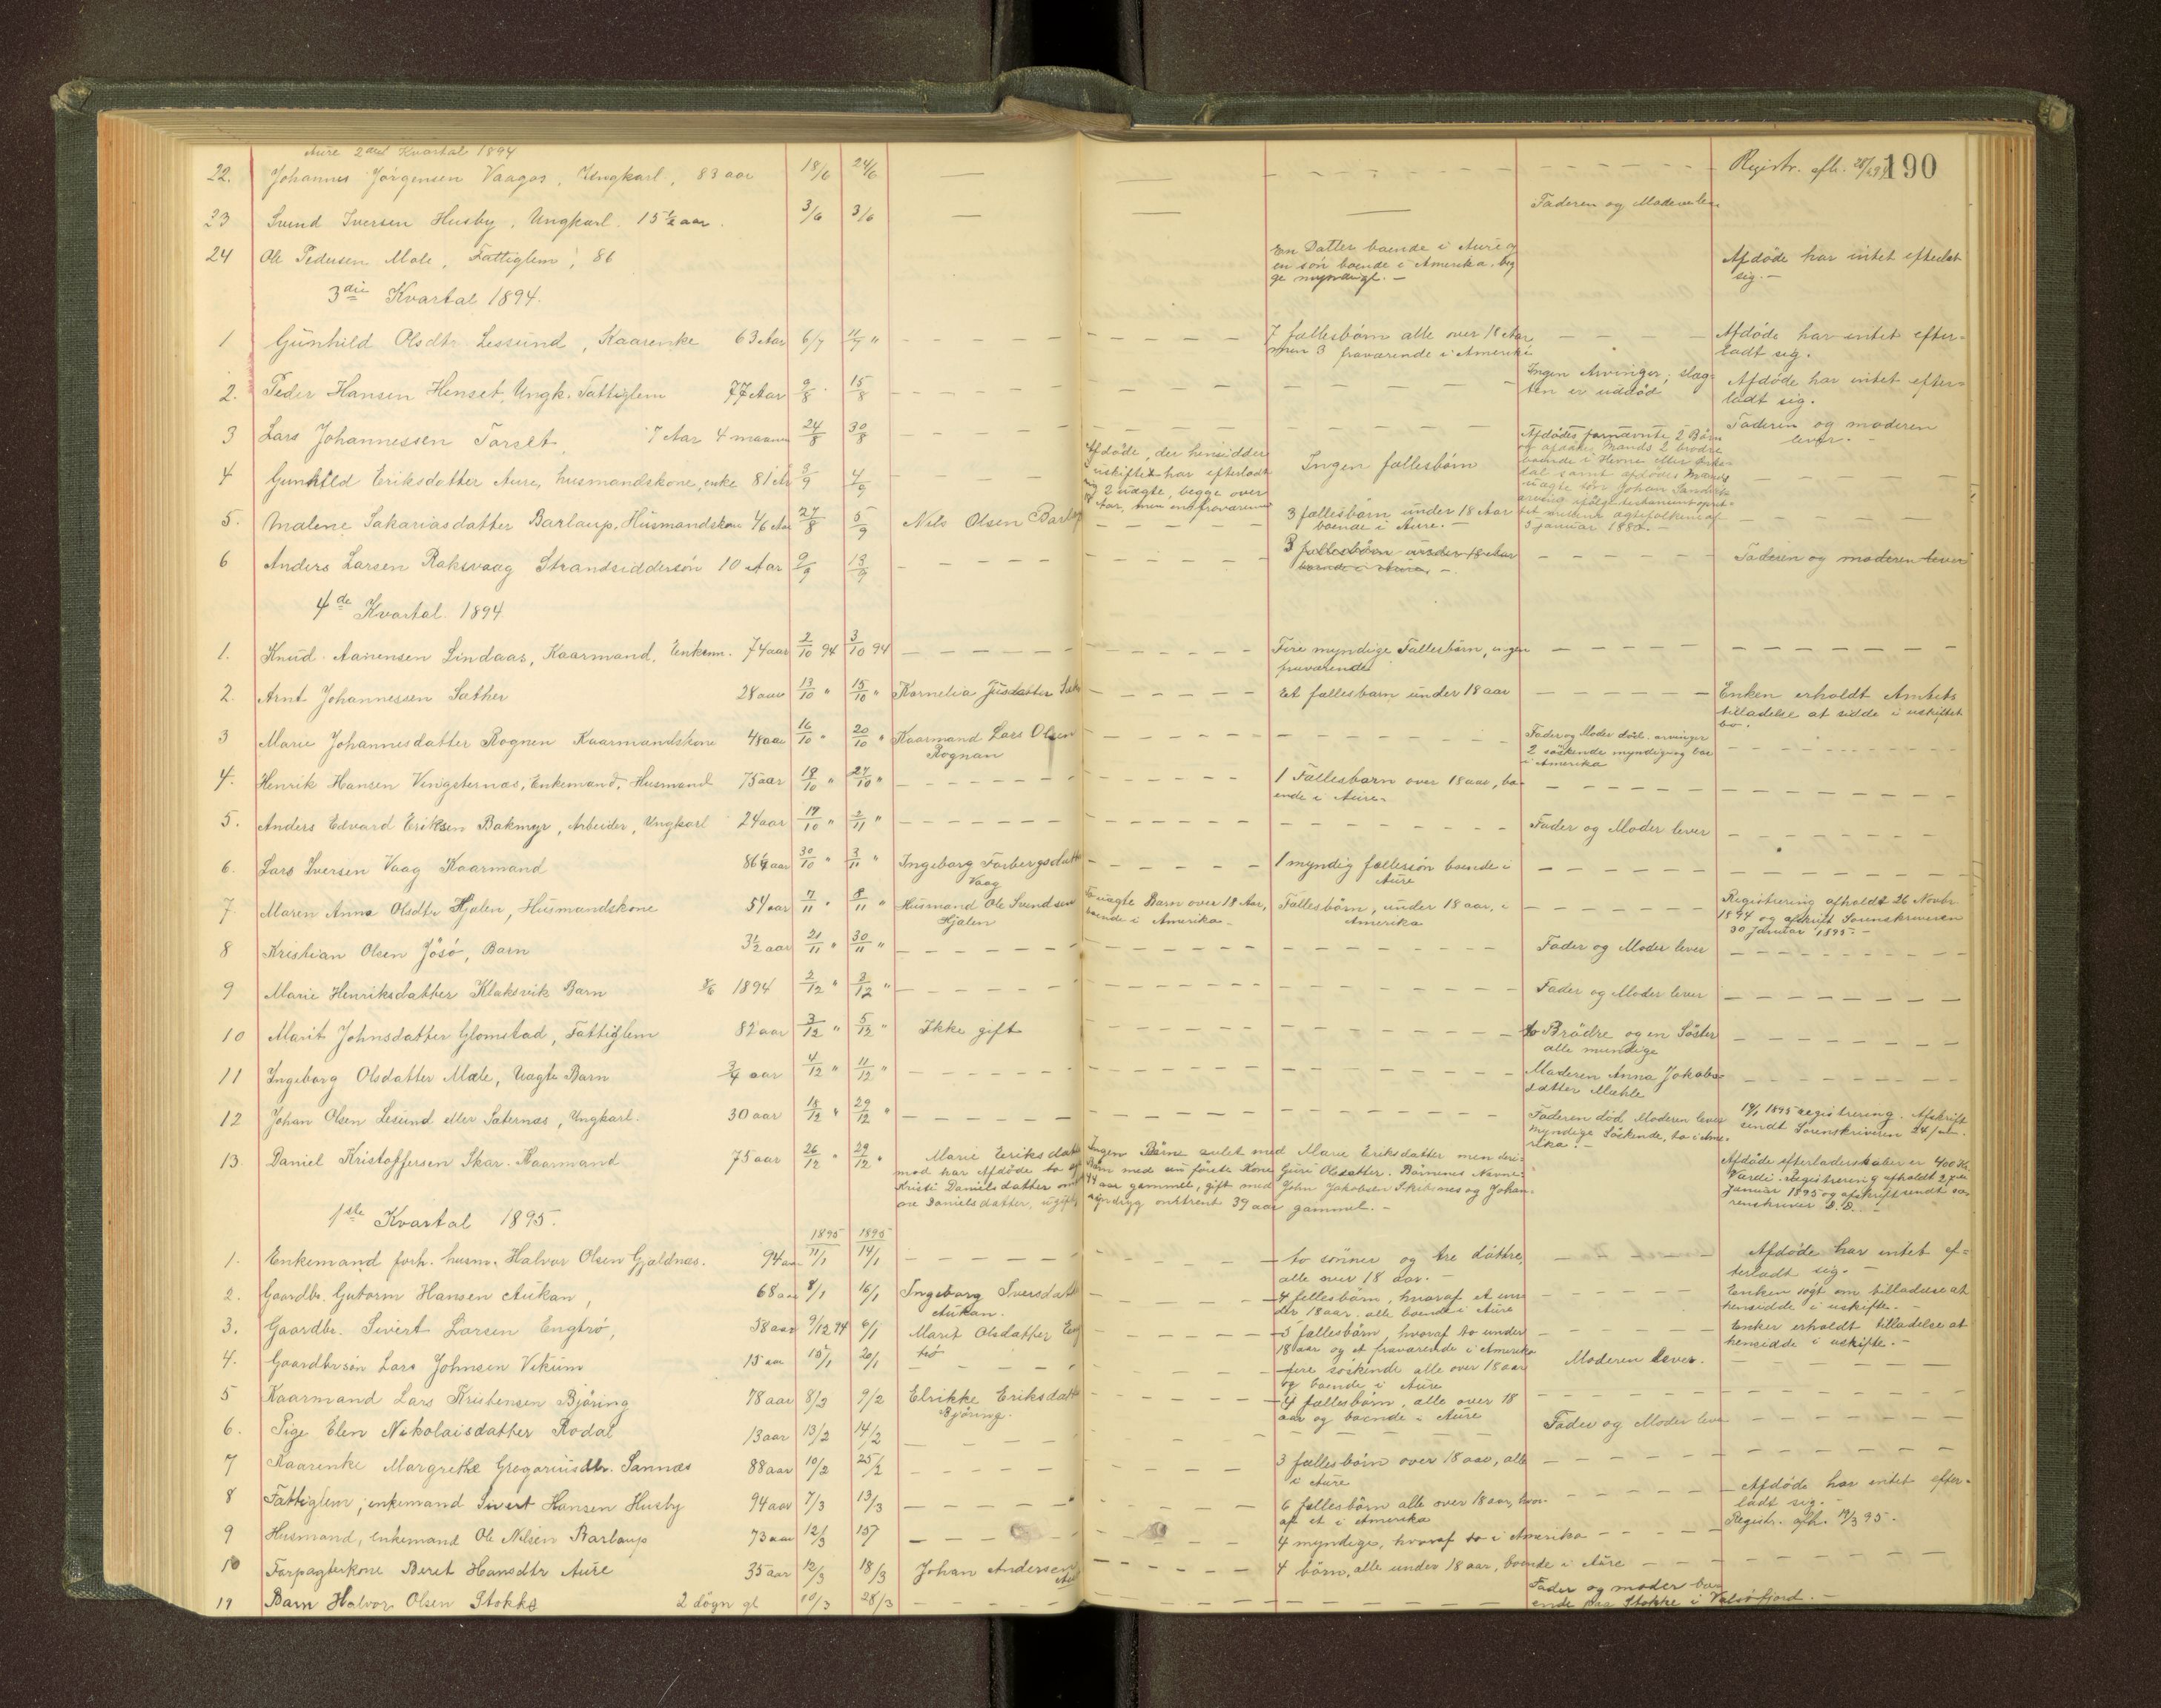 Aure 2det Kvartal 1894
190
22. Johannes Jørgensen Vaagos, Ungkarl, 83 aar 18/6 24/6 — Registr. afh. 28/
23 Svend Iversen Husby, Ungkarl. 15½ aar. 3/6 3/6 — Faderen og Moderen lev
24 Ole Pedersen Mole, Fattiglem, 86 En Datter boende i Aure og
en søn boende i Amerika, beg
ge myndige. — Afdøde har intet efterladt
sig. —
3die Kvartal 1894.
1 Gunhild Olsdtr. Lessund, Kaarenke 63 Aar 6/7 11/7 " 7 fællesbørn alle over 18 Aar
men 3 fraværende i Amerika Afdøde har intet efter-
ladt sig.
2. Peder Hansen Henset, Ungk. Fattiglem 77 Aar 9/8 15/8 Ingen Arvinger, slæg-
ten er uddød Afdøde har intet efter-
ladt sig.
3 Lars Johannessen Torset, 7 Aar 4 maaner 24/8 30/8 Faderen og moderen
lever. —
4 Gunhild Eriksdatter Aure, husmandskone, enke 81 Ar 3/9 4/9 Afdøde, der hensidder
i uskiftet har efterladt
sig 2 uægte, begge over
18 Aar, men en fraværende Ingen fællesbørn Afdødes fornævnte 2 Børn
og afdøde Mands 2 brødre
boende i Hevne eller
samt afdødes Mands
uægte søn Johan
arving ifølge testament opret-
tet mellem ægtefolkene af
5 Januar 1882. —
5. Malene Sakariasdatter Barlaup, Husmandskone 46 Aar 27/8 5/9 Nels Olsen Barlaup 3 fællesbørn under 18 Aar
boende i Aure. —
6 Anders Larsen Raksvaag Strandsiddersøn 10 Aar 9/9 13/9 3 fællesbørn under 18 Aar
boende i Aure. — Faderen og moderen lever
4de Kvartal 1894
1. Knud Aanensen Lindaas, Kaarmand, Enkem. 74 aar 2/10 94 3/10 94 Fire myndige Fællesbørn, ingen
fraværende
2. Arnt Johannessen Sæther 28 aar 13/10 " 15/10 " Kornelia Sæt Et fællesbarn under 18 aar Enken erholdt Amtets
tilladelse at sidde i uskiftet
bo.
3 Marie Johannesdatter Rognen Kaarmandskone 48 aar 16/10 " 20/10 " Kaarmand Lars Olsen
Rognan Fader og Moder død. arvinger
2 søskende myndige og bor
i Amerika
4. Henrik Hansen Vingsternæs, Enkemand, Husmand 75 aar 19/10 " 27/10 " 1 Fællesbarn over 18 aar, bo-
ende i Aure.
5. Anders Edvard Eriksen Bakmyr, Arbeider, Ungkarl 24 aar 19/10 " 2/11 " Fader og Moder lever
6. Lars Iversen Vaag Kaarmand 86¼ aar 30/10 " 3/11 " Ingeborg Torbergsdatter
Vaag 1 myndig fællessøn boende i
Aure
7. Maren Anna Olsdtr Hjalen, Husmandskone 54 aar 7/11 " 8/11 " Husmand Ole Svendsen
Hjalen uægte Barn over 18 Aar,
boende i Amerika. Fællesbørn, under 18 aar, i
Amerika Registrering afholdt 26 Novbr.
1894 og afskrift Sorenskriveren
30 Januar 1895. —
8 Kristian Olsen Jøsø, Barn 3½ aar 21/11 " 30/11 " Fader og Moder lever
9 Marie Henriksdatter Klaksvik Barn 8/6 1894 2/12 " 3/12 " Fader og Moder lever
10 Marit Johnsdatter Glomstad, Fattiglem 82 aar 3/12 " 5/12 " Ikke gift to Brødre og en Søster
alle mundige
11 Ingeborg Olsdatter Mæle, Uægte Barn ¾ aar 4/12 " 11/12 " Moderen Anna Jakobs-
datter Mæhle
12 Johan Olsen Lesund eller Sæternæs, Ungkarl. 30 aar 18/12 " 29/12 " Faderen død Moderen lever
Myndige Søskende, to i Ame-
rika. — 19/1 1895 registrering. Afskrift
sendt Sorenskriveren 24/
13. Daniel Kristoffersen Skar. Kaarmand 75 aar 26/12 " 29/12 " Marie Eriksdatter Ingen Børn avlet med Marie Eriksdatter men deri-
mod har Afdøde to Børn med sin første Kone Guri Olsdatter. Børnenes Navne:
Kristi Danielsdatter 44 aar gammel, gift med John Jakobsen Skibnes og Johan-
ne Danielsdatter, ugift, myndig omtrent 39 aar gammel. — Afdøde efterladenskaber er 400 Kr.
Værdi. Registrering afholdt 2
Januar 1895 og afskrift sendt so-
renskriver S.D. —
1ste Kvartal 1895.
1. Enkemand forh. husm. Halvor Olsen Gjeldnæs. 94 aar 1895 11/1 1895 14/1 to sønner og tre døttre,
alle over 18 aar. — Afdøde har intet ef-
terladt sig. —
2. Gaardbr. Gutorm Hansen Aukan, 68 aar 8/1 16/1 Ingeborg Iversdatter
Aukan. 4 fellesbørn, hvoraf et un-
der 18 aar. alle boende i Aure Enken søgt om tilladelse at
hensidde i uskifte. —
3. Gaardbr. Sivert Larsen Engtrø, 58 aar 9/12 94 6/1 Marit Olsdatter Eng
trø 5 fællesbørn, hvoraf to under
18 aar og et fraværende i Amerika Enken erholdt tilladelse at
hensidde i uskifte. —
4. Gaardbrsøn Lars Johnsen Vikum 15 aar 20/1 fire søskende alle over 18 aar
og boende i Aure Moderen lever.
5 Kaarmand Lars Kristensen Bjøring 78 aar 8/2 9/2 Elrikke Eriksdatter
Bjøring. 4 fællesbørn, alle over 18
aar og boende i Aure
6. Pige Elen Nikolaisdatter Rodal 13 aar 13/2 14/2 Fader og Moder leve
7 Kaarenke Margrethe Gregoriusdtr. Sannæs 88 aar 10/2 25/2 3 fællesbørn over 18 aar, alle
i Aure
8 Fattiglem, enkemand Sivert Hansen Husby 94 aar 7/3 13/3 6 fællesbørn alle over 18 aar, hvor-
af et i Amerika Afdøde har intet efter-
ladt sig. —
9 Husmand, enkemand Ole Nilsen Barlaup 73 aar 12/3 4 myndige, hvoraf to i Amerika Registr. afh. 19/3 95.
10 Forpagterkone Beret Hansdtr Aure 35 aar 12/3 18/3 Johan Andersen
Aure 4 børn, alle under 18 aar, boende i Aure
11 Barn Halvor Olsen Stokke 2 døgn gl 10/3 28/3 Fader og moder bo-
ende paa Stokke i Valsøfjord. —